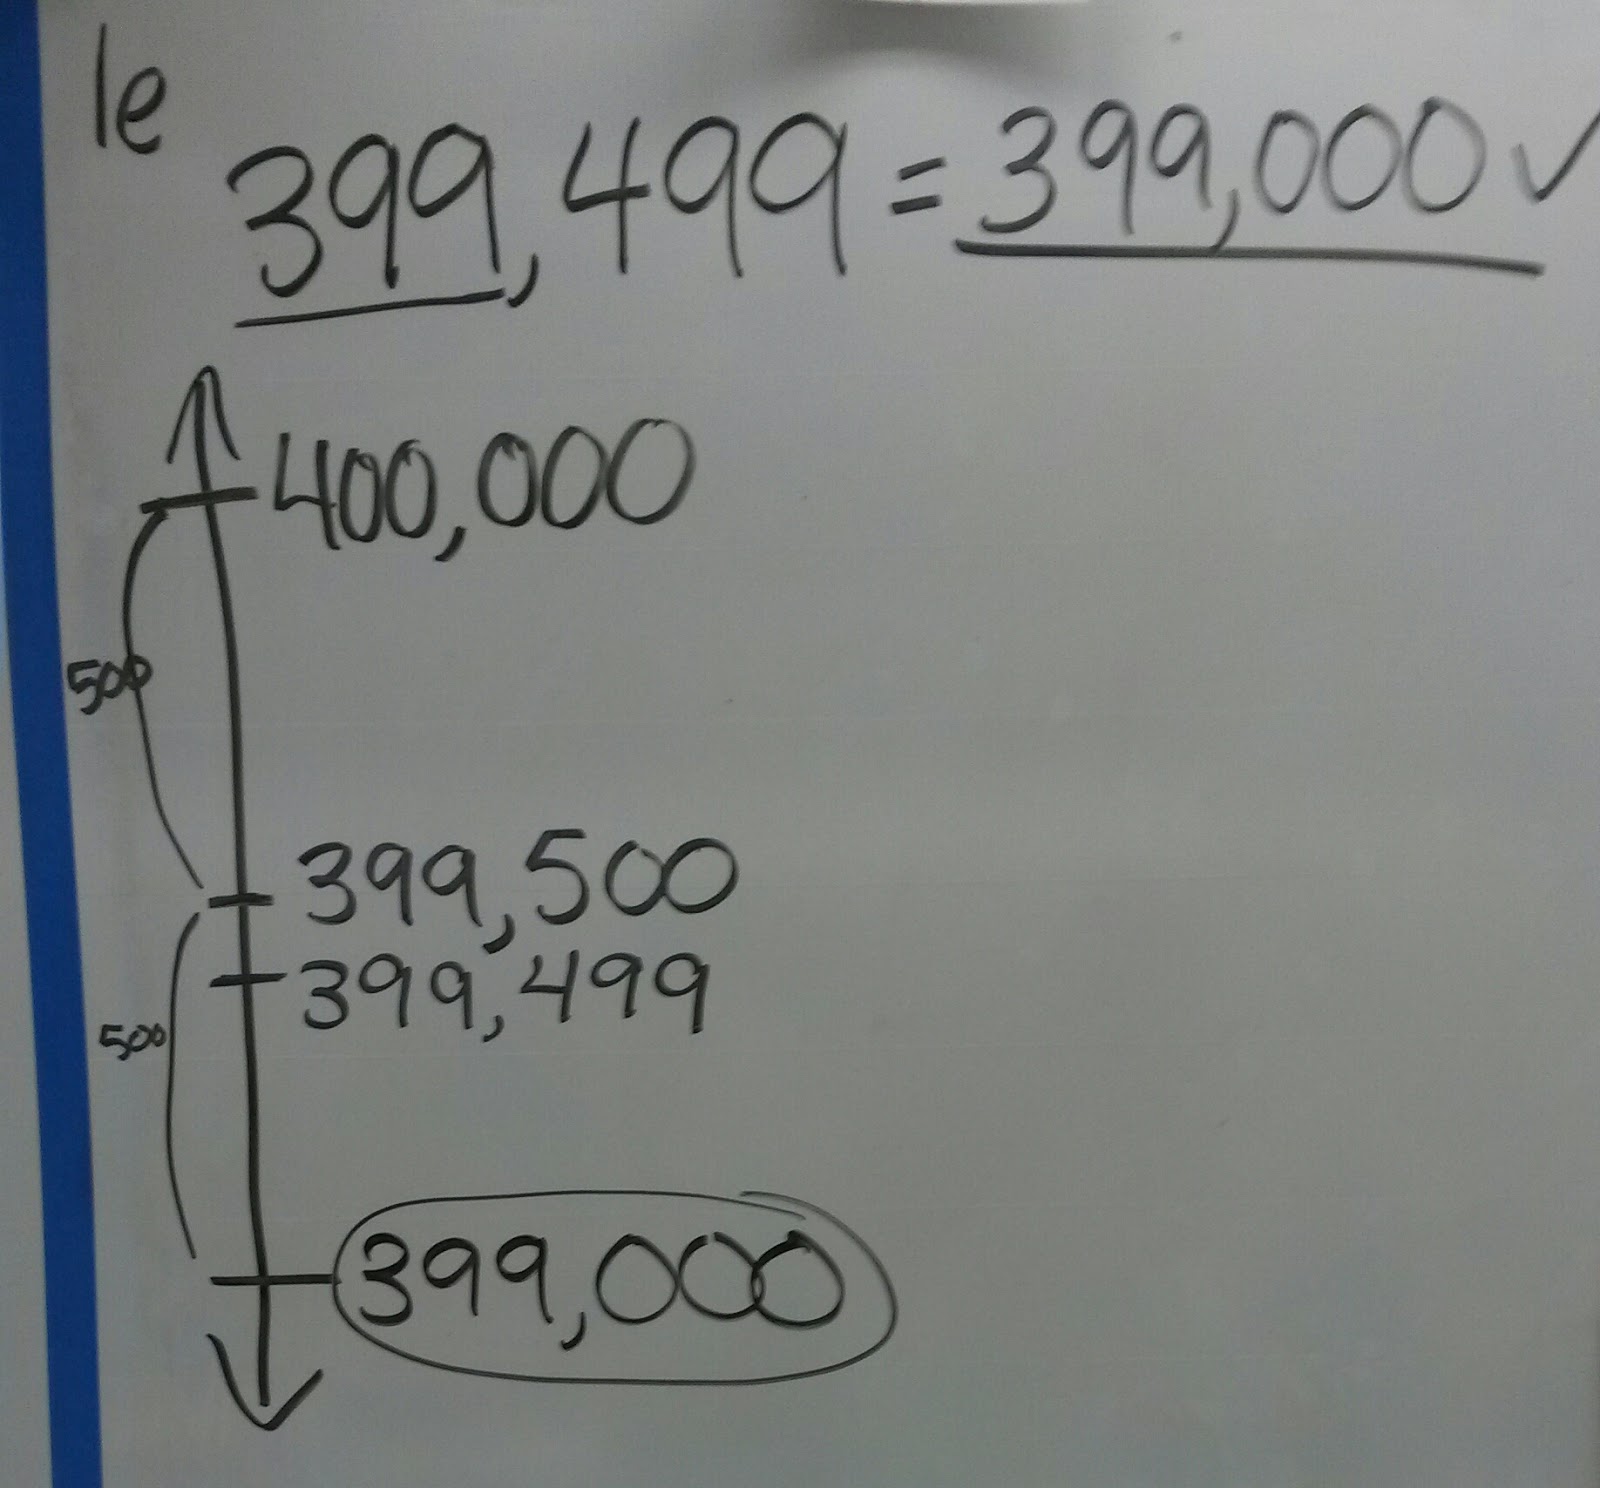 1e
399,499 = 399,000 ✓
400,000
500
399,500
399,499
500
399,000